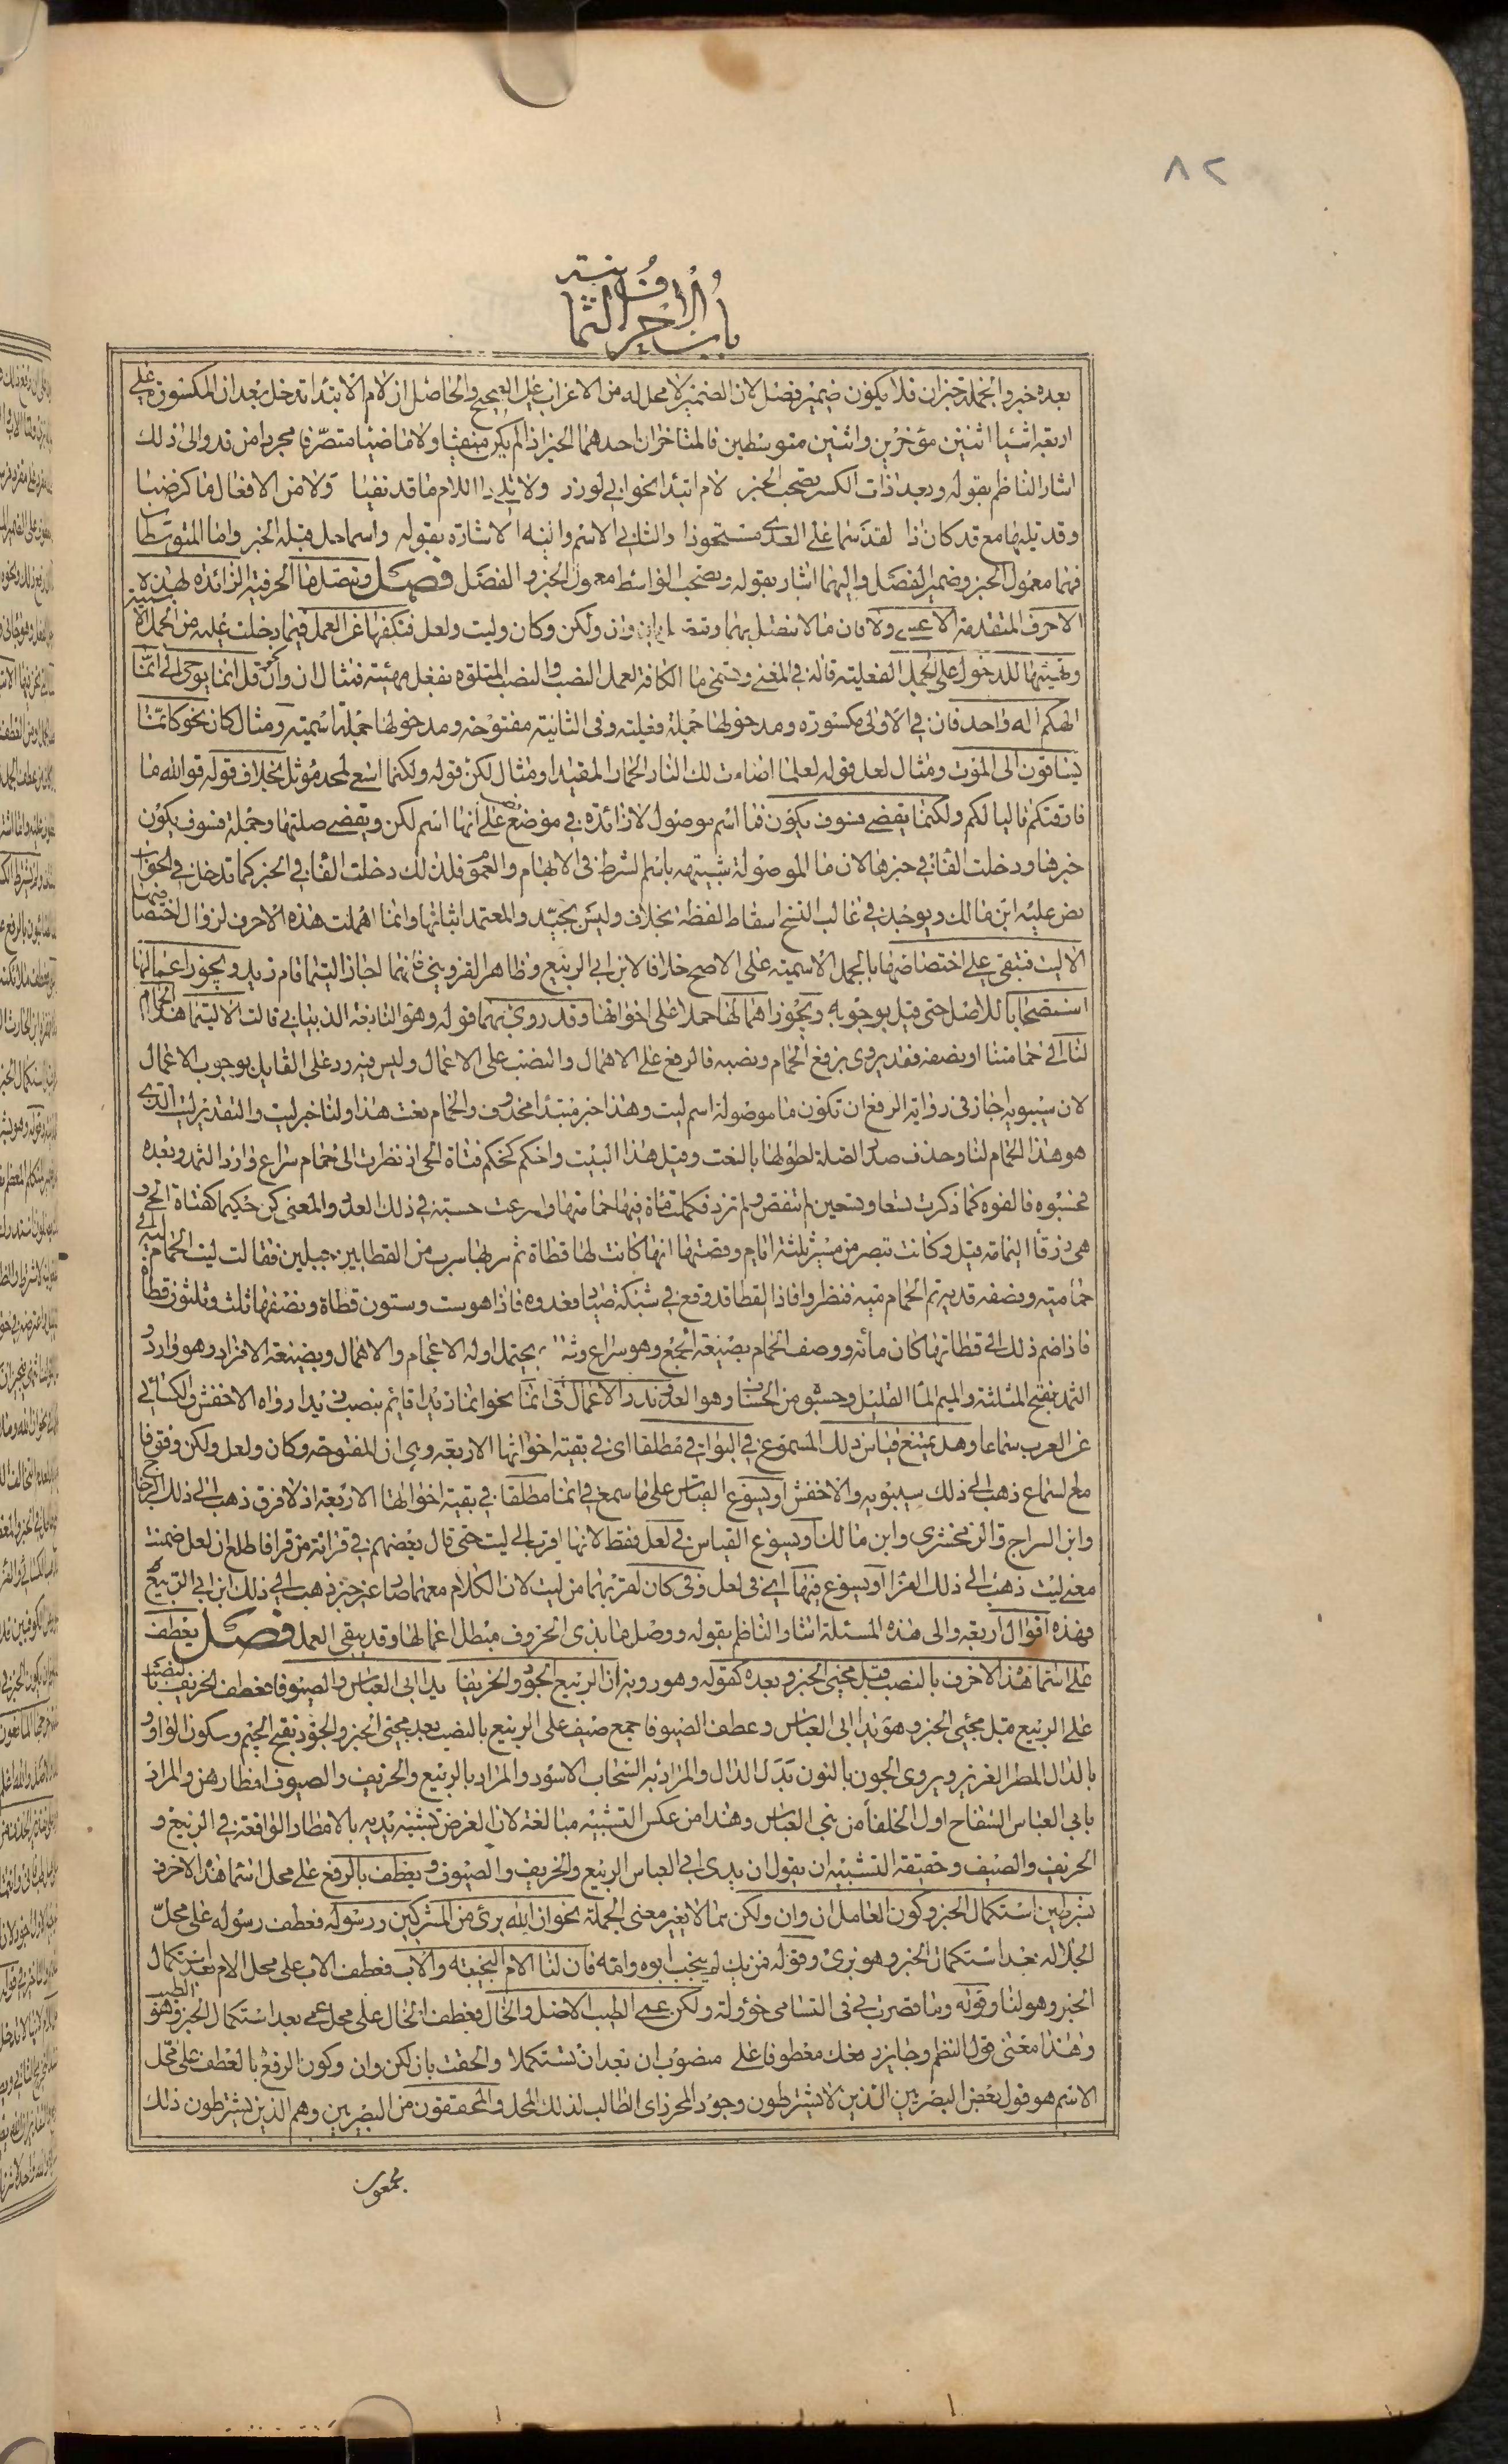 ٨٢
باب الاحرف الثمانية
بعده خبر والجملة خبر ان فلا يكون ضمير فصل لان الضمير لا محل له من الاعراب على الصحيح والحاصل ان لام الابتدا تدخل بعد ان المكسورة على
اربعة اشيا اثنين مؤخرين واثنين متوسطين فالمتاخران احدهما الخبر اذا لم يكن منفيا ولا ماضيا متصرفا مجردا من قد والى ذلك
اشار الناظم بقوله وبعد ذات الكسر تصحب الخبر لام ابتدا نحو اني لوزر ولا يلي ذا اللام ما قد نفيا ولا من الافعال ما كرضيا
وقد يليها مع قد كان ذا لقد سما على العدى مستحوذا والثاني الاسم واليه الاشارة بقوله واسما حل قبله الخبر واما المتوسطان
فهما معمول الخبر وضمير الفصل واليهما اشار بقوله وتصحب الواسط معمول الخبر والفصل فصل وتتصل ما الحرفية الزائدة بهذه
الاحرف المتقدمة الا عسى ولا فان ما لا تتصل بهما وتتصل بان وان ولكن وكان وليت ولعل فتكفها عن العمل فيما دخلت عليه من الجمل الاسمية
وتهيئها للدخول على الجمل الفعلية قاله في المغني وتسمى ما الكافة لعمل النصب والنصب المتلوة بفعل مهيئة فمثال ان وان قل انما يوحى الي انما
الهكم اله واحد فان في الاولى مكسورة ومدخولها جملة فعلية وفي الثانية مفتوحة ومدخولها جملة اسمية ومثال كان نحو كانما
يساقون الى الموت ومثال لعل قوله لعلما اضاءت لك النار الحمار المقيدا ومثال لكن قوله ولكنما اسعى لمجد مؤثل بخلاف قوله فوالله ما
فارقتكم قاليا لكم ولكنما يقضى فسوف يكون فما اسم موصول لا زائدة في موضع نصب على انها اسم لكن ويقضى صلتها وجملة فسوف يكون
خبرها ودخلت الفا في خبرها لان ما الموصولة شبيهة باسم الشرط في الابهام والعموم فلذلك دخلت الفا في الخبر كما تدخل في الجواب
نص عليه ابن مالك ويوجد في غالب النسخ اسقاط لفظة بخلاف وليس بجيد والمعتمد اثباتها وانما اهملت هذه الاحرف لزوال اختصاصها
الا ليت فتبقى على اختصاصها بالجمل الاسمية على الاصح خلافا لابن ابي الربيع وظاهر القزويني فانهما اجازا ليتما قام زيد ويجوز اعمالها
استصحابا للاصل حتى قيل بوجوبه ويجوز اهمالها حملا على اخواتها وقد روي بهما قوله وهو النابغة الذبياني قالت الا ليتما هذا الحمام
لنا الى حمامتنا او نصفه فقد يروى برفع الحمام ونصبه فالرفع على الاهمال والنصب على الاعمال وليس فيه رد على القايل بوجوب الاعمال
لان سيبويه اجاز في رواية الرفع ان تكون ما موصولة اسم ليت وهذا خبر مبتدا محذوف والحمام نعت هذا ولنا خبر ليت والتقدير ليت الذي
هو هذا الحمام لنا وحذف صدر الصلة لطولها بالنعت وقبل هذا البيت واحكم كحكم فتاة الحي اذ نظرت الى حمام سراع وارد الثمد وبعده
فحسبوه فالفوه كما ذكرت تسعا وتسعين لم تنقص ولم تزد فكملت مائة فيها حمامتها واسرعت حسبة في ذلك العدد والمعنى كن حكيما كفتاة الحي و
هي زرقا اليمامة قيل وكانت تبصر من مسيرة ثلثة ايام وقصتها انها كانت لها قطاة ثم مر بها سرب من القطا بين جبلين فقالت ليت الحمام ليه الى
حمامتيه ونصفه قديه تم الحمام ميه فنظروا فاذا القطا قد وقع في شبكة صياد فعدوه فاذا هو ست وستون قطاة ونصفها ثلث وثلثون قطاة
فاذا ضم ذلك الى قطاتها كان مائة ووصف الحمام بصيغة الجمع وهو سراع يحتمل اوله الاعجام والاهمال وبصيغة الافراد وهو وارد و
الثمد بفتح المثلثة والميم الما القليل وحسبو من الحساب وهو العد وندر الاعمال في انما نحو انما زيدا قائم بنصب زيدا رواه الاخفش والكسائي
عن العرب سماعا وهل يمتنع قياس ذلك المسموع في البواقي مطلقا اي في بقية اخواتها الاربعة وهي ان المفتوحة وكان ولعل ولكن وقوفا
مع السماع ذهب الى ذلك سيبويه والاخفش او يسوغ القياس على ما سمع في انما مطلقا في بقية اخواتها الاربعة اذ لا فرق ذهب الى ذلك الزجاجي
وابن السراج والزمخشري وابن مالك او يسوغ القياس في لعل فقط لانها اقرب الى ليت حتى قال بعضهم في قراءة من قرا فاطلع ان لعل ضمنت
معنى ليت ذهب الى ذلك الفرا او يسوغ فيها اي في لعل وفي كان لقربهما من ليت لان الكلام معهما صار غير خبر ذهب الى ذلك ابن ابي الربيع
فهذه اقوال اربعة والى هذه المسئلة اشار الناظم بقوله ووصل ما بذي الحروف مبطل اعمالها وقد يبقى العمل فصل يعطف
على اسما هذه الاحرف بالنصب قبل مجئ الخبر وبعده كقوله وهو روبة ان الربيع الجود والخريفا يدا ابي العباس والصيوفا فعطف الخريف بالنصب
على الربيع قبل مجئ الخبر وهو يدا ابي العباس وعطف الصيوفا جمع صيف على الربيع بالنصب بعد مجئ الخبر والجود بفتح الجيم وسكون الواو و
بالدال المطر الغزير ويروى الجون بالنون بدل الدال والمراد به السحاب الاسود والمراد بالربيع والخريف والصيوف امطارهن والمراد
بابي العباس السفاح اول الخلفا من بني العباس وهذا من عكس التشبيه مبالغة لان الغرض تشبيه يديه بالامطار الواقعة في الربيع و
الخريف والصيف وحقيقة التشبيه ان يقول ان يدي ابي العباس الربيع والخريف والصيوف ويعطف بالرفع على محل اسما هذه الاحرف
بشرطين استكمال الخبر وكون العامل ان وان ولكن مما لا يغير معنى الجملة نحو ان الله برئ من المشركين ورسوله فعطف رسوله على محل
الجلالة بعد استكمال الخبر وهو برئ وقوله فمن يك لم ينجب ابوه وامه فان لنا الام النجيبة والاب فعطف الاب على محل الام بعد استكمال
الخبر وهو لنا وقوله وما قصرت بي في التسامي خؤولة ولكن عمي الطيب الاصل والخال فعطف الخال على محل عمي بعد استكمال الخبر وهو الطيب
وهذا معنى قول النظم وجايز رفعك معطوفا على منصوب ان بعد ان تستكملا والحقت بان لكن وان وكون الرفع بالعطف على محل
الاسم هو قول بعض البصريين الذين لا يشترطون وجود المحرز اي الطالب لذلك المحل والمحققون من البصريين وهم الذين يشترطون ذلك
مجمعون